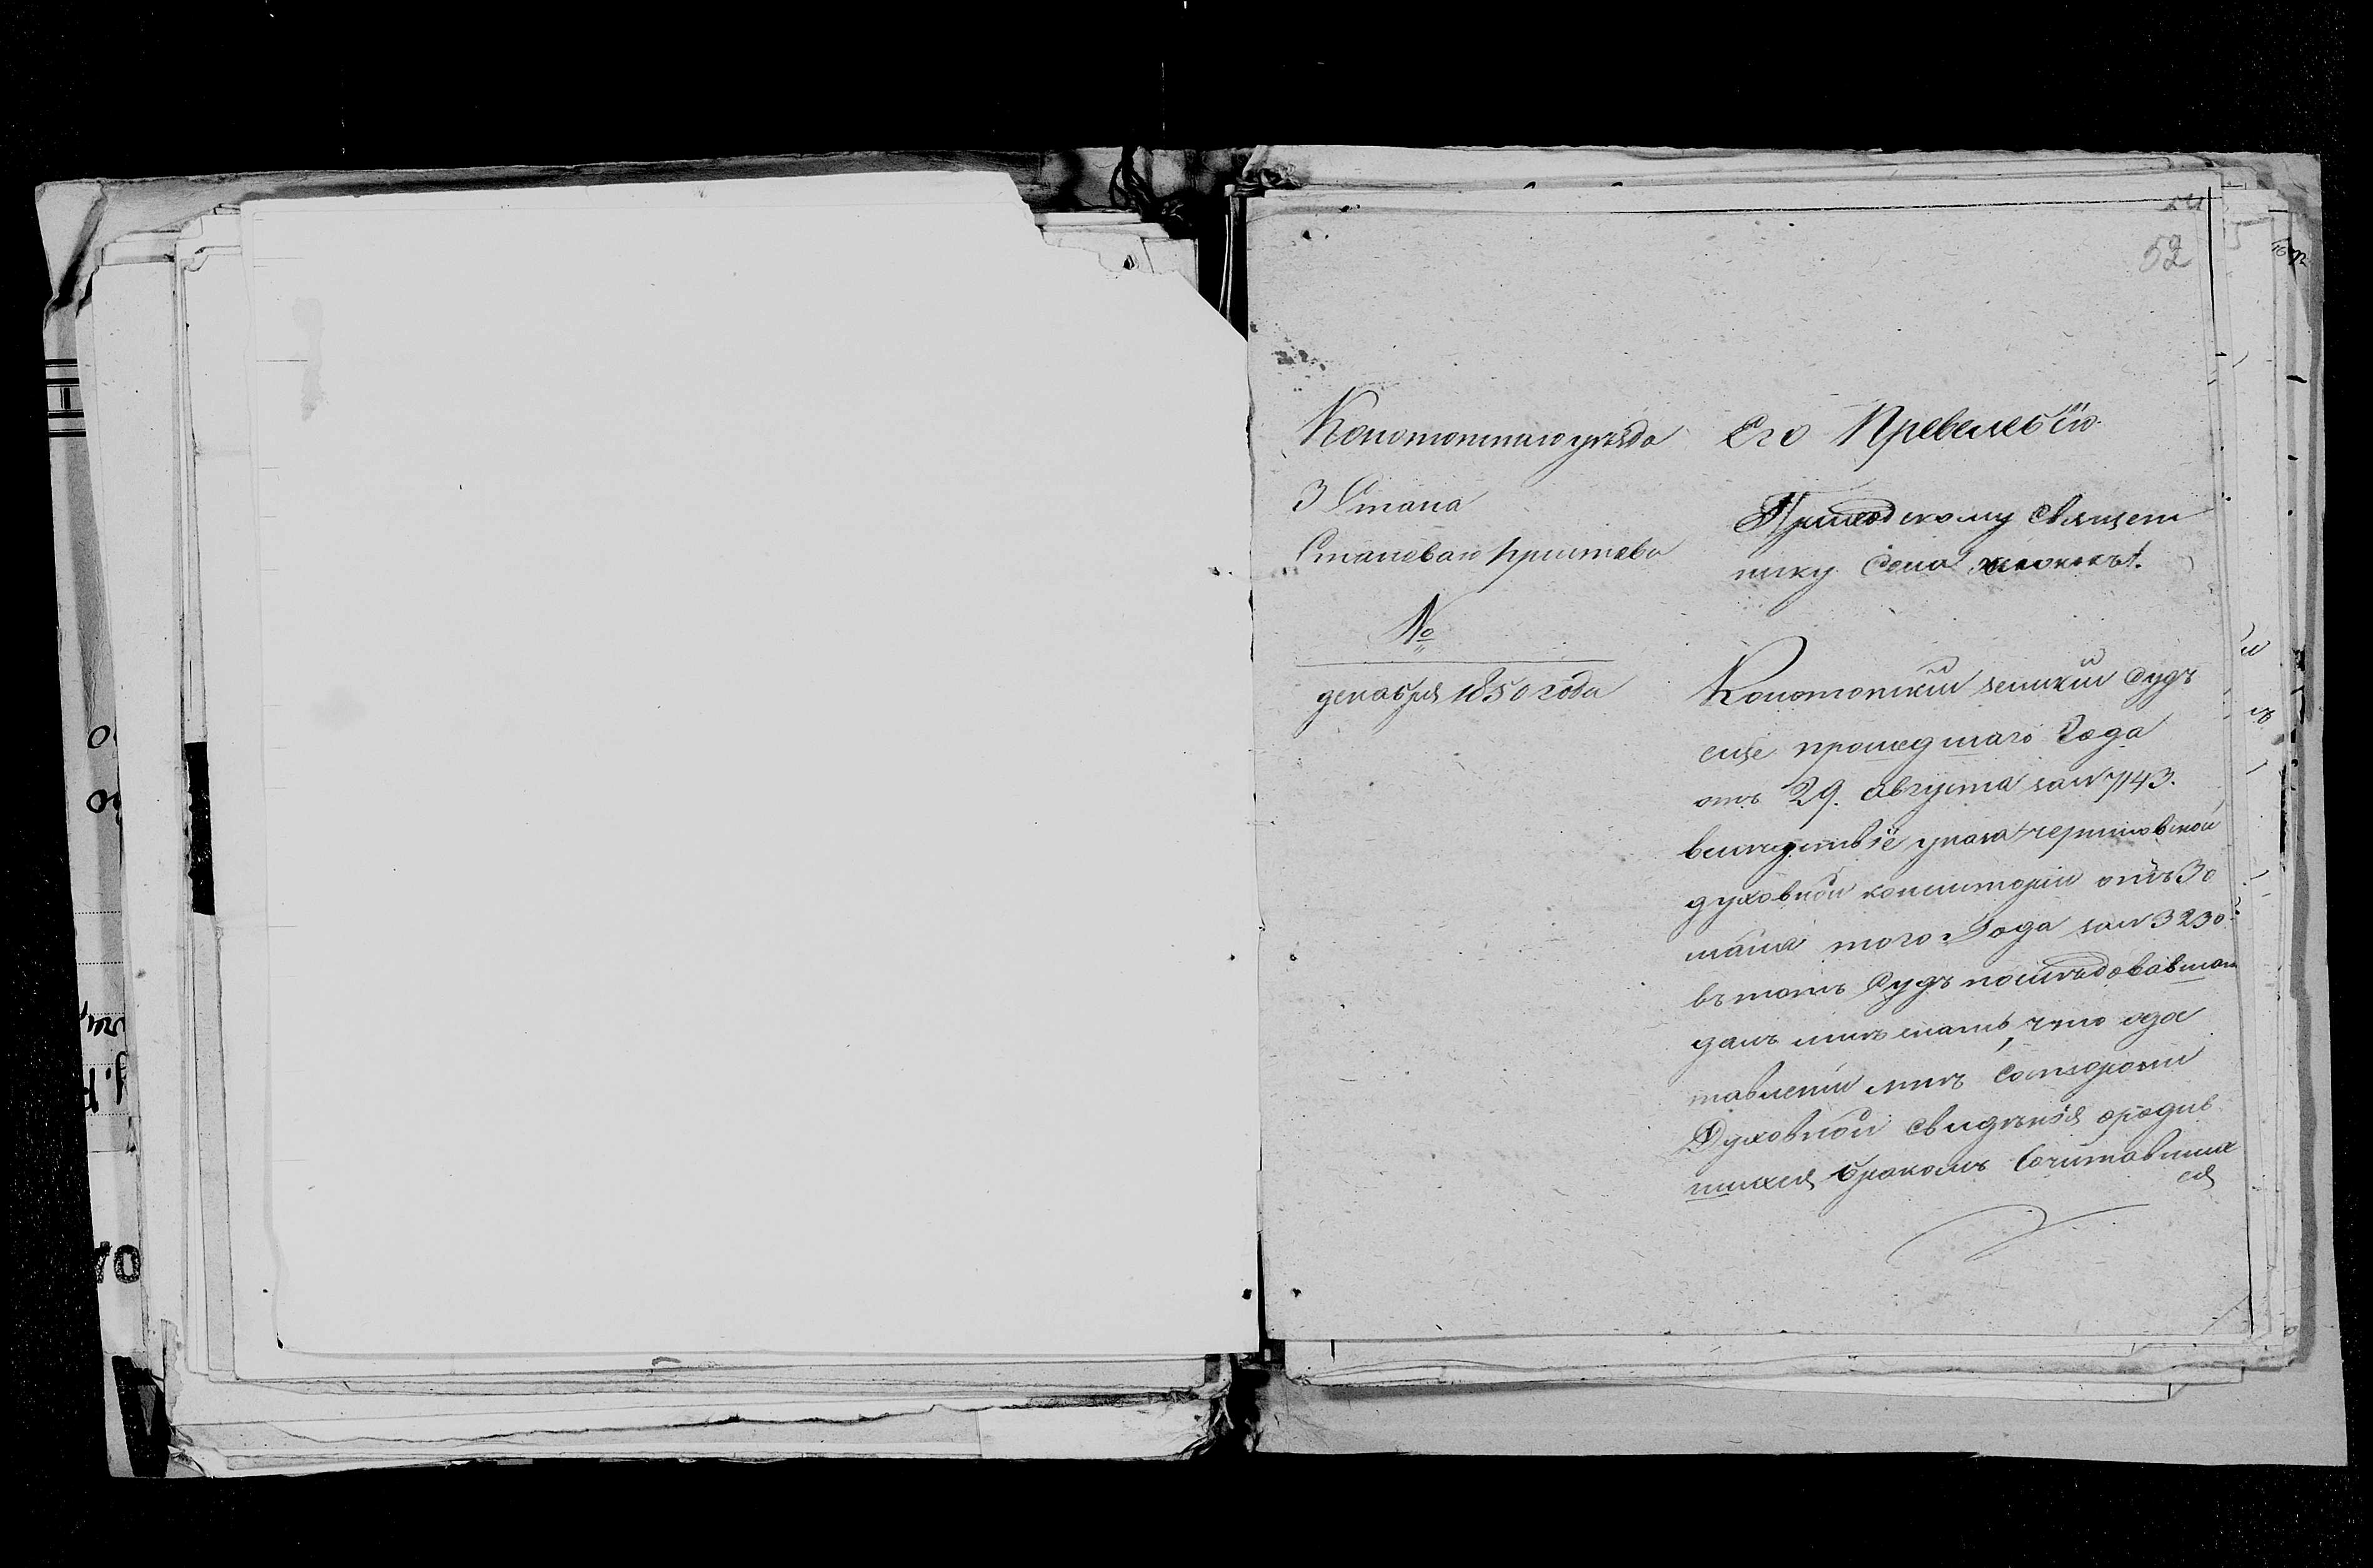 52
Конотопскаго уѣзда
3 Стана
Становаго Пристава
№
декабря 1850 года
Его Превелебію
Приходскому Священ
нику Села
Конотопскій земскій судъ
еще прошедшаго Года
отъ 29. августа за № 7143.
вслѣдствіе указа черниговской
духовной консисторіи отъ 30
маія того Года за № 3230
въ тотъ Судъ послѣдовавшаго
далъ мнѣ знать, что о до
ставленіи мнѣ Состороны
Духовной свидѣнія ородив
шихся бракомъ Сочитавших
ся